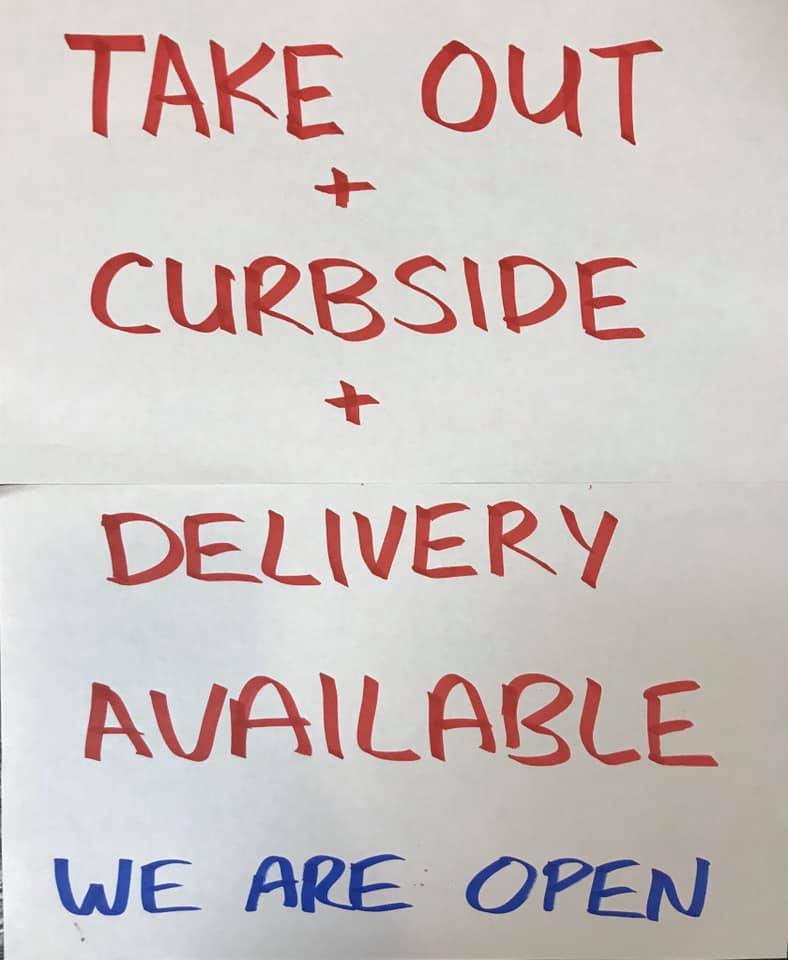 TAKE OUT
+
CURBSIDE
+
DELIVERY
AVAILABLE
WE ARE OPEN